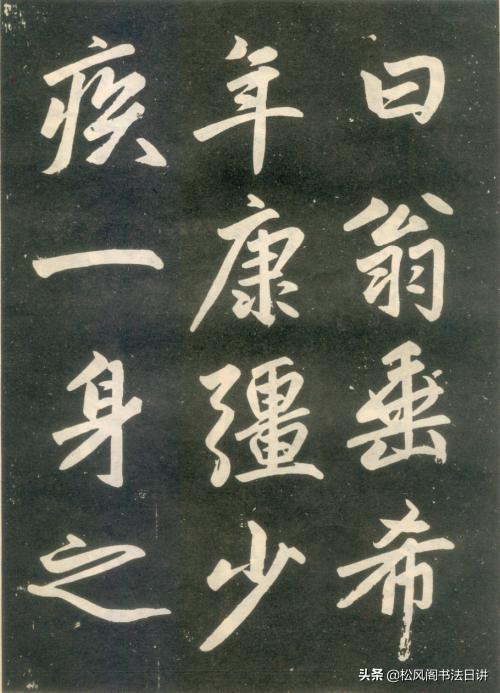 曰翁垂希
年康彊少
疾一身之
头条 @松风阁书法日讲